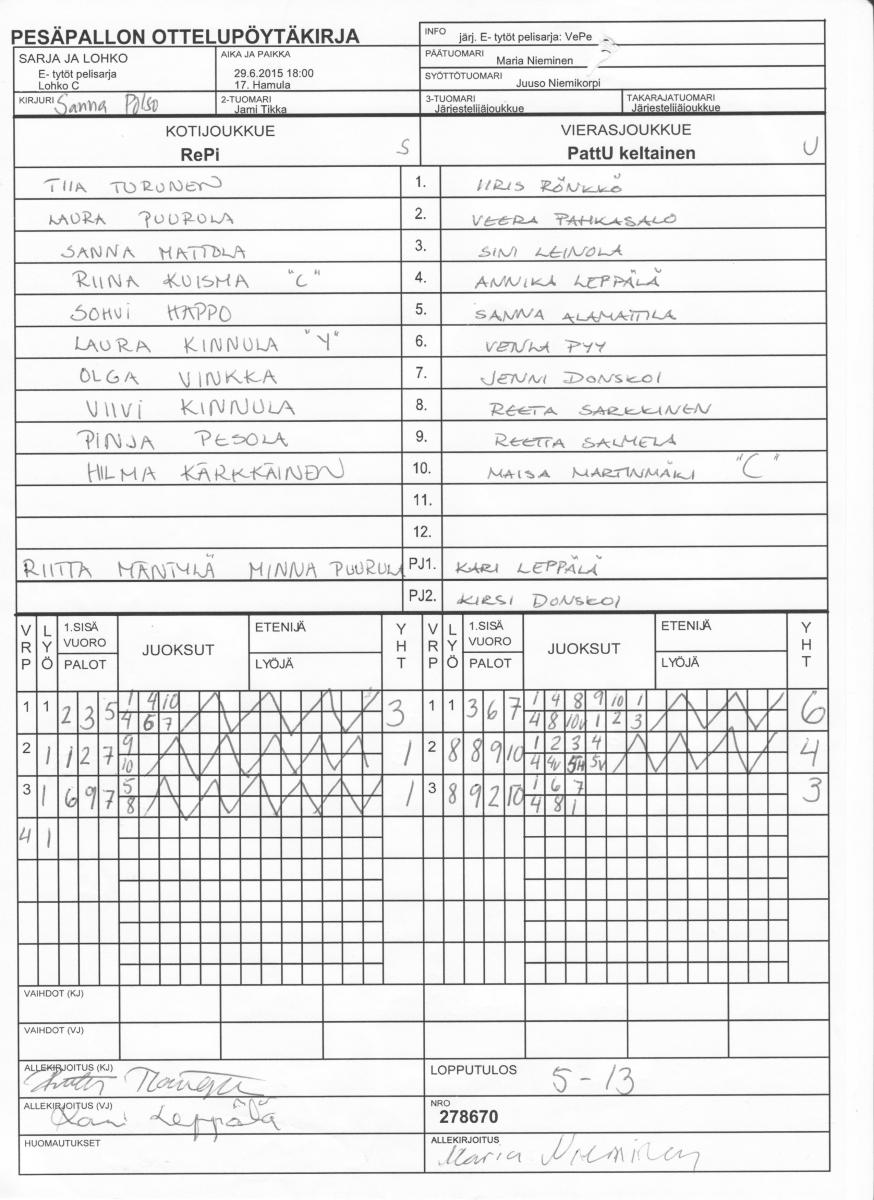 PESÄPALLON OTTELUPÖYTÄKIRJA
INFO järj. E- tytöt pelisarja: VePe
SARJA JA LOHKO
E- tytöt pelisarja
Lohko C
AIKA JA PAIKKA
29.6.2015 18:00
17. Hamula
PÄÄTUOMARI Maria Nieminen
SYÖTTÖTUOMARI Juuso Niemikorpi
KIRJURI Sanna Polso
2-TUOMARI
Jami Tikka
3-TUOMARI
Järjestelijäjoukkue
TAKARAJATUOMARI
Järjestelijäjoukkue
KOTIJOUKKUE
RePi S
VIERASJOUKKUE
PattU keltainen U
TIIA TURUNEN 1. IIRIS RÖNKKÖ
LAURA PUUROLA 2. VEERA PAHKASALO
SANNA MATTOLA 3. SINI LEINOLA
RIINA KUISMA "C" 4. ANNIKA LEPPÄLÄ
SOHVI HAPPO 5. SANNA ALAMATTILA
LAURA KINNULA "Y" 6. VENLA PYY
OLGA VINKKA 7. JENNI DONSKOI
VIIVI KINNULA 8. REETA SARKKINEN
PINJA PESOLA 9. REETTA SALMELA
HILMA KÄRKKÄINEN 10. MAISA MARTINMÄKI "C"
11.
12.
RIITTA MÄNTYLÄ MINNA PUURULA PJ1. KARI LEPPÄLÄ
PJ2. KIRSI DONSKOI
VRP LYÖ 1.SISÄ VUORO PALOT JUOKSUT ETENIJÄ LYÖJÄ YHT VRP LYÖ 1.SISÄ VUORO PALOT JUOKSUT ETENIJÄ LYÖJÄ YHT
1 1 2 3 5 1 4 10 3 1 1 3 6 7 1 4 8 9 10 1 6
4 6 7 4 8 10v 1 2 3
2 1 1 2 7 9 1 2 8 8 9 10 1 2 3 4 4
10 4 4v 5H 5v
3 1 6 9 7 5 1 3 8 9 2 10 1 6 7 3
8 4 8 1
4 1
VAIHDOT (KJ)
VAIHDOT (VJ)
ALLEKIRJOITUS (KJ)
LOPPUTULOS 5-13
ALLEKIRJOITUS (VJ) Kari Leppälä
NRO
278670
HUOMAUTUKSET
ALLEKIRJOITUS
Maria Nieminen